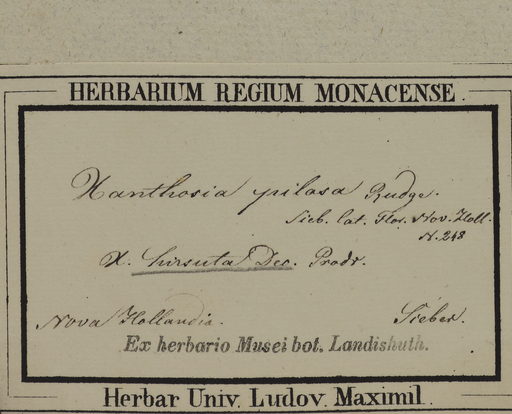 HERBARIUM REGIUM MONACENSE.
Xanthosia pilosa Rudge.
Sieb. lat. Flor. Nov. Holl.
N. 248
X. hirsuta Dec. Prodr.
Nova Hollandia. Sieber.
Ex herbario Musei bot. Landishuth.
Herbar Univ. Ludov. Maximil.